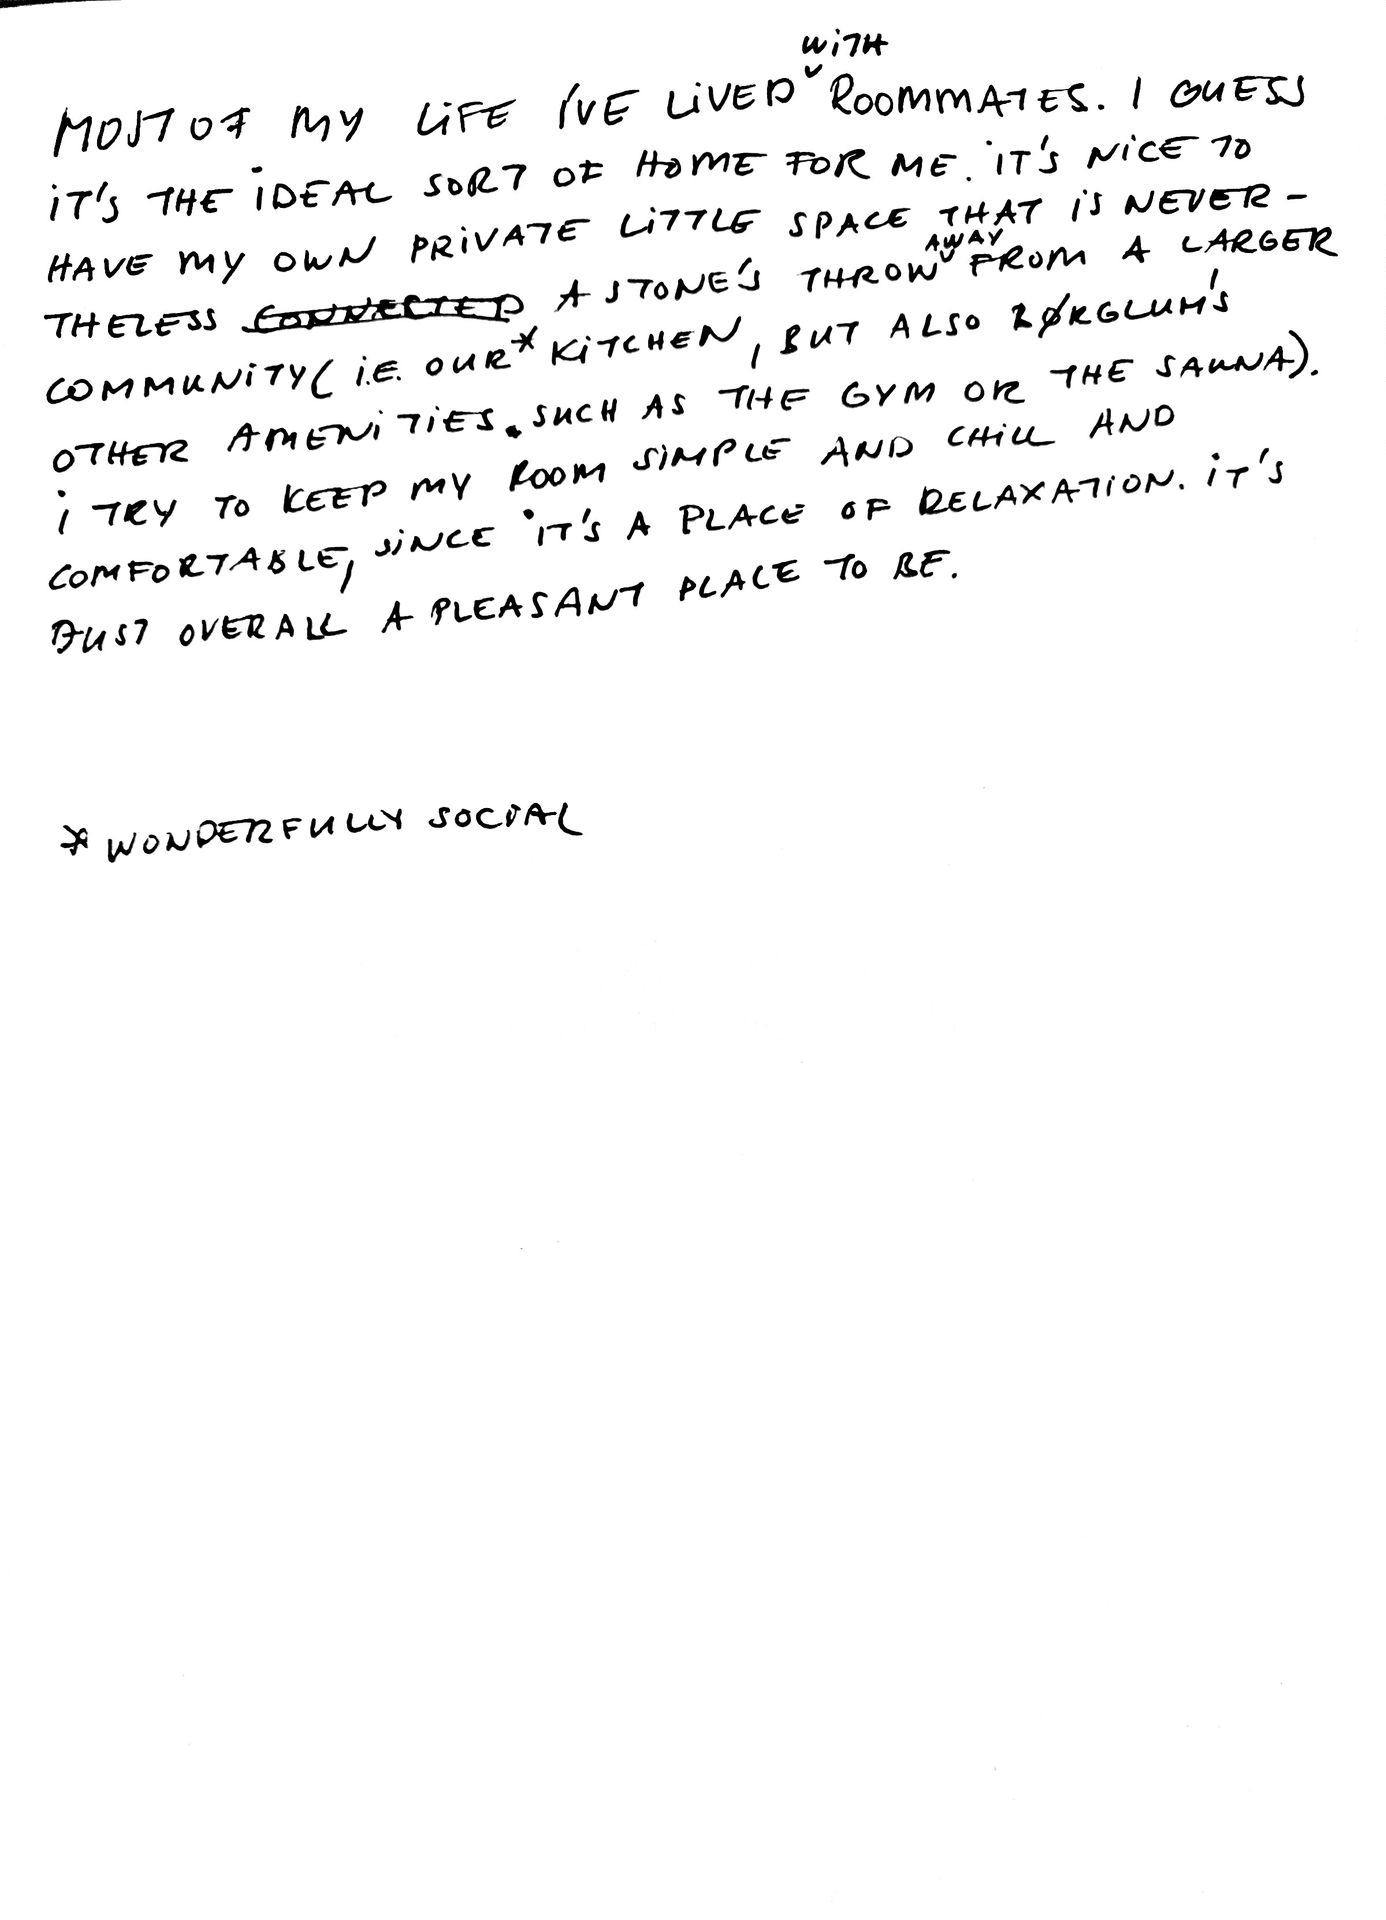 MOST OF MY LIFE I'VE LIVED WITH ROOMMATES. I GUESS
IT'S THE IDEAL SORT OF HOME FOR ME. IT'S NICE TO
HAVE MY OWN PRIVATE LITTLE SPACE THAT IS NEVER-
THELESS CONNECTED A STONE'S THROW AWAY FROM A LARGER
COMMUNITY (I.E. OUR* KITCHEN, BUT ALSO BØRGLUM'S
OTHER AMENITIES. SUCH AS THE GYM OR THE SAUNA).
I TRY TO KEEP MY ROOM SIMPLE AND CHILL AND
COMFORTABLE, SINCE IT'S A PLACE OF RELAXATION. IT'S
JUST OVERALL A PLEASANT PLACE TO BE.
* WONDERFULLY SOCIAL